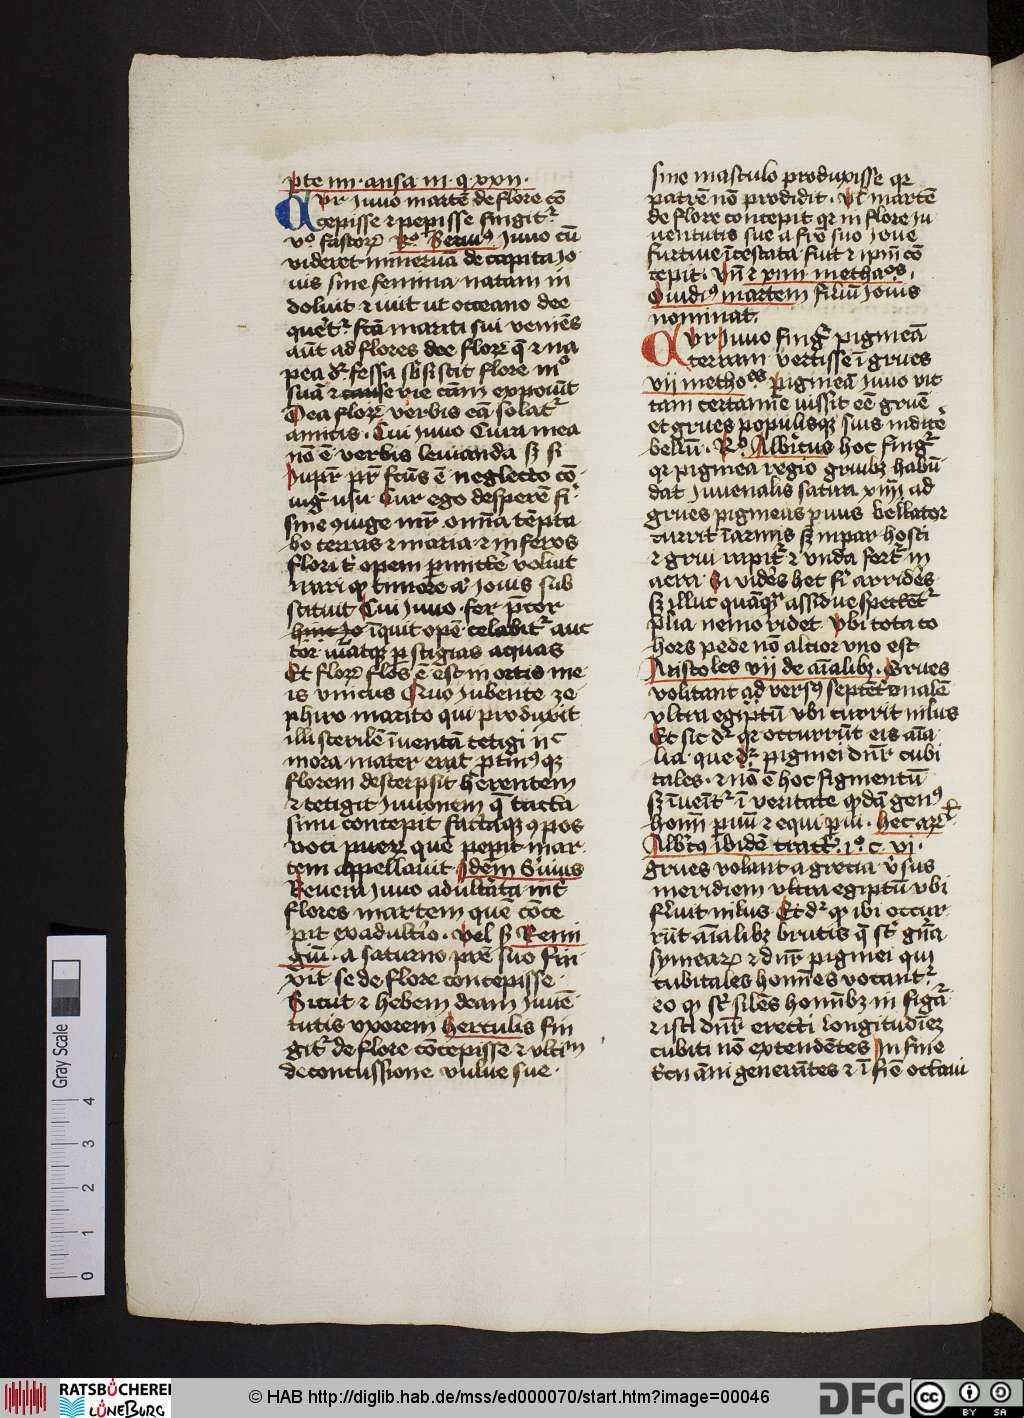 pͬte iiii · causa iii · q xxii ·
Cur Juno martē de flore cō
cepisse ⁊ peperisse fingitᷣ
vº fastorꝝ Rº Seruiꝰ Juno cū
videret mineruā de capite Jo
uis sine femina natam in
doluit ⁊ iuit ut occeano dee
fessa flore
suā ⁊ cause vie cām exposuit
Dea florꝝ verbis eā solatᷣ
amicis · Cui Juno Cura mea
nō ē verbis leuanda sꝫ si
Jupͬr pͬr fcūs ē neglecto cō
iugͥ usu Cur ego desperē fiͥ
sine ꝯiuge mͬr omīa tēpta
bo terras ⁊ maria ⁊ inferos
flori opem volūit
timore Jouis sub
Cui Juno fer pͬcor
īquit opē celabitᷣ auc
tor stigias aquas
Et florꝝ flos ē est in ortis me
is vnicus Quo Jubente ze
phiro marito qui produxit
illi sterilē iuuencā tetigi nͨ
mora mater erat ptinꝰ qꝫ
florem desterpsit herentem
⁊ tetigit Junonem q̄ tacta
sinu concepit factaqꝫ ꝯpos
voti puerꝝ quē peperit mar
tem appellauit Idem Sͬuius
Reuera Juno adultͬata int͛
flores martem quē cōce
pit ex adultͬio · vel sꝫ Remi
giū · a saturno pͬre suo fin
xit se de flore concepisse ·
Sicut ⁊ hebem deam Juuē
tutis vxorem herculis fin
gitͬ de flore cōcepisse ⁊ vltīm
de concussione vulue sue ·
sine masculo produxisse qͬ
patrē nō prodidit · Ul martē
de flore concepit qͬ in flore Ju
uentutis sue a frē suo Joue
furtiue īcestata fuit ⁊ ipm̄ cō
cepit · Vn̄ ⁊ xiiii methaoͤs ·
Ouidiꝰ martem filiū Jouis
nominat
Cur Juno fingͬ pigmeā
terram vertisse ī grues
vii methoͤs pigmeā Juno vic
tam certamīe iussit eē gruē
et grues populisqꝫ suis indicē
bellū · Rº Albͬicus hoc fingͬ
qͬ pigmea regio gruibꝫ habū
dat Juuenalis satira xiii ad
grues pigmeus pͣuus bellator
currit ī armis sꝫ inpar hosti
⁊ grui rapitͬ ⁊ vnda fertͬ in
aera Si videͬs hec arrideͬs
sꝫ illuc quāqͣ assidue spectētͬ
p̄lia nemo ridet Vbi tota co
hors pede nō altior vno est
Aristoles vii de aīalibꝫ · Grues
volitant ad versꝰ septētͬonalē
vltra egiptū vbi currit nilus
Et sic dͬ qͬ occurrūt eis aīa
lia que dͬ pigmei dn̄r cubi
tales ⁊ nō ē hoc figmentū
sꝫ inuēitͬ ī veritate qͦdā genꝰ
hoīm pͣuū ⁊ equi pͣui · hec arͤ
Albͬtꝰ ibidē tractͬ 1º c · vi ·
grues volant a grecia v͛sus
meridiem vltra egiptū vbi
fluuit nilus Et dͬ qͦ ibi occur
rūt aīalibꝫ brutis q̄ st̄
symearꝝ ⁊ dn̄r pigmei qui
cubitales hoīmes vocantͬ
eo qͦ st̄ silēs hoībꝫ in figͣ
⁊ isti dn̄r erecti longitudīeꝫ
cubiti nō extendētes In fine
anī generātes ⁊ ī fīe octaui
Gray Scale
4
3
2
1
0
RATSBÜCHEREI
LÜNEBURG
© HAB http://diglib.hab.de/mss/ed000070/start.htm?image=00046
DFG
cc
BY SA